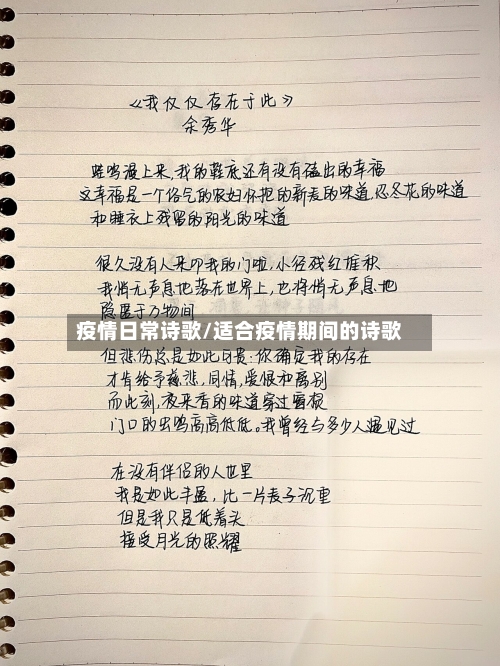 《我仅仅存在于此》
余秀华
蛙鸣漫上来,我的鞋底还有没有磕出的幸福
这幸福是一个俗气的农妇怀抱的新麦的味道,忍冬花的味道
和睡衣上残留的阳光的味道
很久没有人来叩我的门啦,小径残红堆积
我悄无声息地落在世界上,也将悄无声息地
隐匿于万物间
疫情日常诗歌/适合疫情期间的诗歌
但悲伤总是如此珍贵:你确定我的存在
才肯给予慈悲,同情,爱恨和离别
而此刻,夜来香的味道穿过窗棂
门口的虫鸣高高低低。我曾经与多少人遇见过
在没有伴侣的人世里
我是如此丰盈,比一片麦子沉重
但是我只是低着头
接受月光的照耀